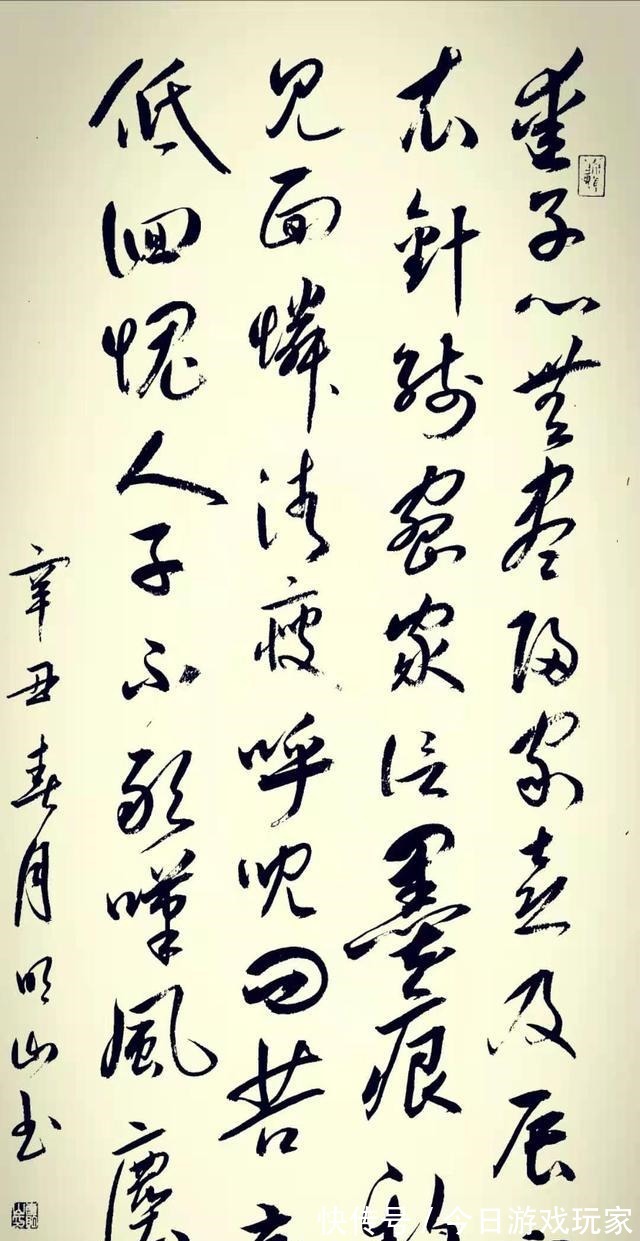 愛子心無盡歸家喜及辰
衣針線密家信墨痕新
見面憐清瘦呼兒問苦
低徊愧人子不敢嘆風塵
辛丑春月明山书
快传号 / 今日游戏玩家